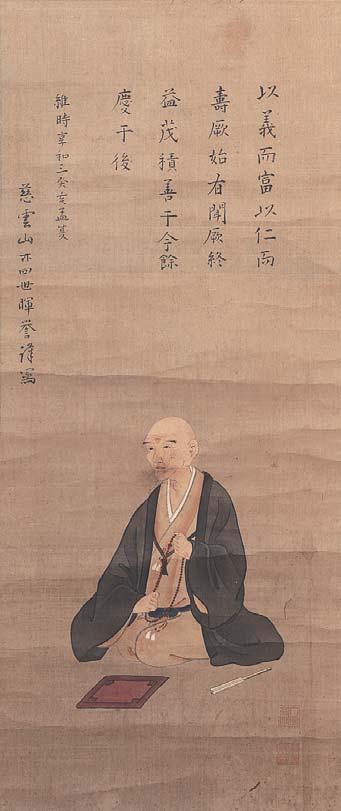 以義而富以仁而
壽厥始有聞厥終
益茂積善于今餘
慶于後
維時享和三癸亥孟夏
慈雲山第四世暉誉謹寫